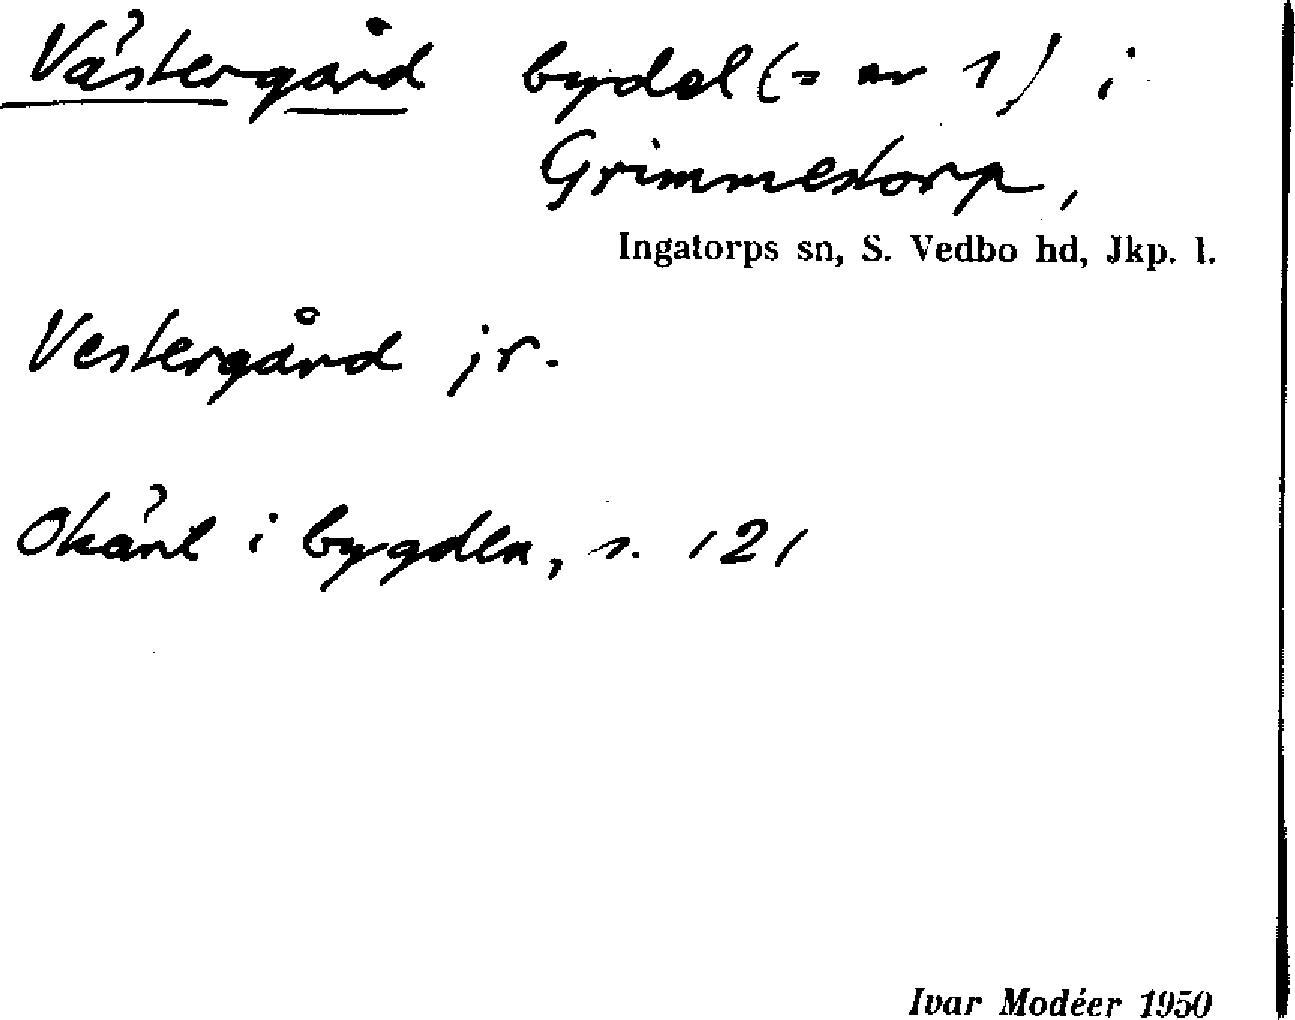 Västergård bydel (= nr 1) i
Grimmestorp,
Ingatorps sn, S. Vedbo hd, Jkp. l.
Vestergård jr.
Okänt i bygden, s. 121
Ivar Modéer 1950